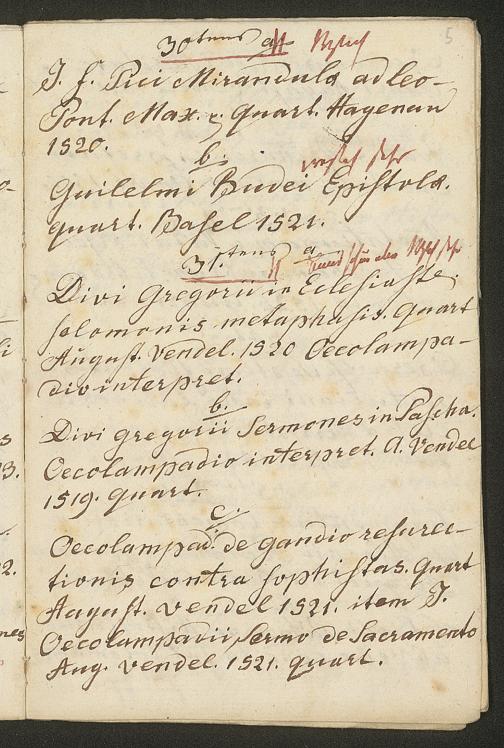 5
30tens a
J. f. Pici Mirandulæ ad Leo-
Pont. Max. quart. Hagenau
1520.
b.
Guilelmi Budei Epistolæ.
quart. Basel 1521.
31.tens a
Divi Gregorii in Eclesiaste.
solomonis metaphasis. quart
August. Vendel. 1520 Oecolampa-
dio interpret.
b.
Divi gregorii Sermones in Pascha.
Oecolampadio interpret. A. Vendel
1519. quart.
c.
Oecolampad. de gandio resurec-
tionis contra sophistas. quart
August. Vendel 1521. item J.
Oecolampadii, Sermo de Sacramento
Aug. Vendel. 1521. quart.